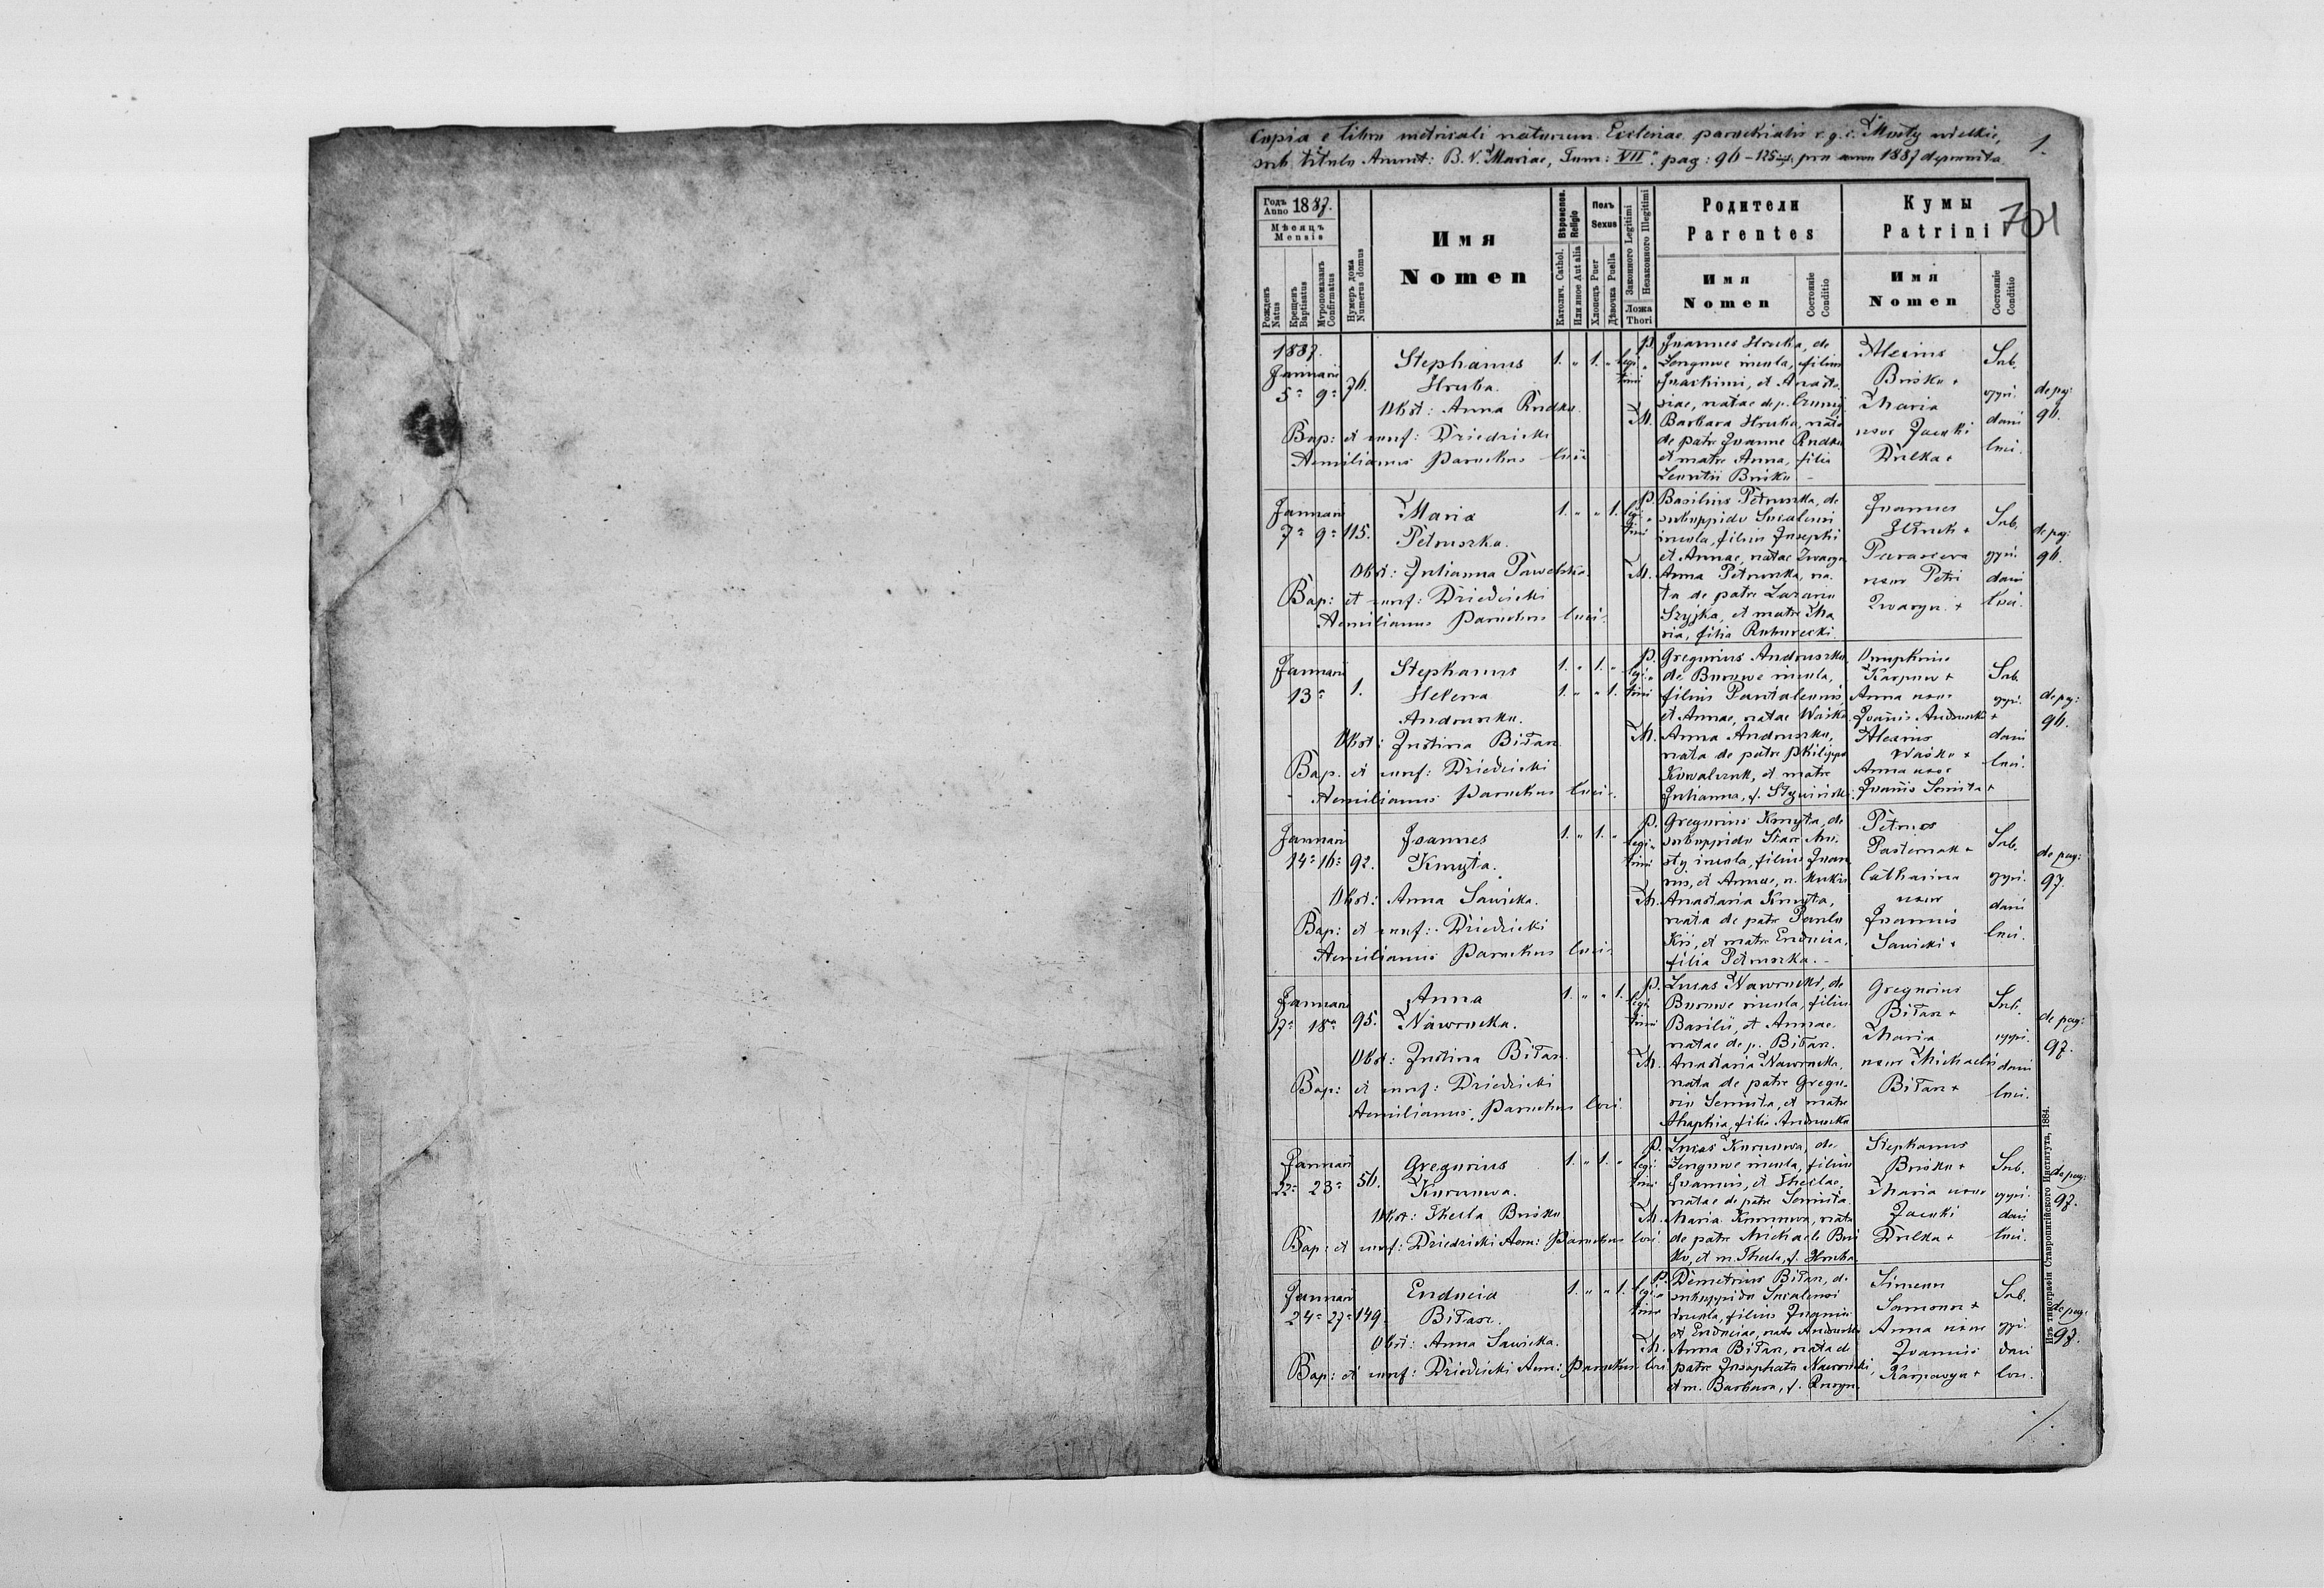 Copia e libro metricali natorum Ecclesiae parochialis r. g. c. Mosty wielkie, 1.
sub titulo Annunt: B. V. Mariae, Tom: VII. pag: 96-125 pro anno 1887 deprompta.
701
Годъ Anno 1887.
Мѣсяцъ
Mensis
Рожденъ Natus
Крещенъ Baptisatus
Муропомазанъ Confirmatus
Нумеръ дома Numerus domus
Имя
Nomen
Вѣроиспов. Religio
Католич. Cathol.
Или иное Aut alia
Полъ Sexus
Хлопецъ Puer
Дѣвочка Puella
Законного Legitimi
Незаконного Illegitimi
Ложа Thori
Родители
Parentes
Имя
Nomen
Состояніе Conditio
Кумы
Patrini
Имя
Nomen
Состояніе Conditio
1887.
Januarii
5a 9a 76.
Stephanus
Hruba.
1. " 1. " legitimi
Obst: Anna Rudko.
Bap: et conf: Dziedzicki
Aemilianus Parochus loci
P. Joannes Hruba, de
incola, filius
Joachimi, et Anasta-
siae, natae de p.
M. Barbara Hruba, nata
de patre Joanne Rudko
et matre Anna, filia
Leontii Bosko
Alexius
Bosko +
Maria
uxor Jacobi
Dulka +
Sub.
oppi.
dani
loci.
de pag:
96.
Januarii
7a 9a 115.
Maria
Petruszka.
1. " " 1. legitimi
Obst: Julianna Pawelska.
Bap: et conf: Dziedzicki
Aemilianus Parochus loci.
P. Basilius Petruszka, de
suboppido
incola, filius Josephi
et Annae, natae Zwaryn
M. Anna Petruszka, na-
ta de patre Lazaro
Szyjka, et matre Ma
ria, filia
Joannes
+
Parascewa
uxor Petri
Zwaryn +
Sub.
oppi.
dani
loci.
de pag:
96.
Januarii
13a 1.
Stephanus
Helena
Andruszko.
1. " 1. "
1. " " 1. legitimi
Obst: Justina Biłan
Bap. et conf: Dziedzicki
Aemilianus Parochus loci.
P. Gregorius Andruszko,
de Borowe incola,
filius Pantaleonis,
et Annae, natae Waśko
M. Anna Andruszko,
nata de patre Philippo
Kowalczuk, et matre
Julianna, f.
Onuphrius
Karpow +
Anna uxor
Joannis Andruszko +
Alexius
Waśko +
Anna uxor
Joannis Semita +
Sub.
oppi.
dani
loci.
de pag:
96.
Januarii
14a 16a 92.
Joannes
Kmyta.
1. " 1. " legitimi
Obst: Anna Sawicka.
Bap: et conf: Dziedzicki
Aemilianus Parochus loci
P. Gregorius Kmyta, de
suboppido Stare Mo-
sty incola, filius Joan
nis, et Annae, n.
M. Anastasia Kmyta,
nata de patre Paulo
et matre Eudocia,
filia Petruszka.
Petrus
Pasternak +
Catharina
uxor
Joannis
Sawicki +
Sub.
oppi.
dani
loci.
de pag:
97.
Januarii
17a 18a 95.
Anna
Nawrocka.
1. " " 1. legitimi
Obst: Justina Biłan.
Bap: et conf: Dziedzicki
Aemilianus, Parochus loci.
P. Lucas Nawrocki, de
Borowe incola, filius
Basilii, et Annae
natae de p. Biłan.
M. Anastasia Nawrocka,
nata de patre Grego-
rio Semita, et matre
Ahaphia, filia Andruszko
Gregorius
Biłan +
Maria
uxor Michaelis
Biłan +
Sub.
oppi.
dani
loci.
de pag:
97.
Januarii
22a 23a 56.
Gregorius
Kurunwa.
1. " 1. " legitimi
Obst: Thecla Bosko
Bap: et conf: Dziedzicki Aem: Parochus loci.
P. Lucas Kurunwa, de
incola, filius
Joannis, et Theclae,
natae de patre Semita
M. Maria Kurunwa, nata
de patre Michaele Bos
ko, et m. Thecla, f. Hruba
Stephanus
Bosko +
Maria uxor
Jacobi
Dulka +
Sub.
oppi.
dani
loci.
de pag:
97.
Januarii
24a 27a 149.
Eudocia
Biłan.
1. " " 1. legitimi
Obst: Anna Sawicka.
Bap: et conf: Dziedzicki Aem: Parochus loci
P. Demetrius Biłan, de
suboppido
incola, filius
et Eudociae, nata Andruszko
M. Anna Biłan, nata de
patre Josaphato Nawrocki,
et m. Barbara, f.
Simeon
+
Anna uxor
Joannis
+
Sub.
oppi.
dani
loci.
de pag:
97.
Изъ типографіи Ставропигійского Института, 1884.